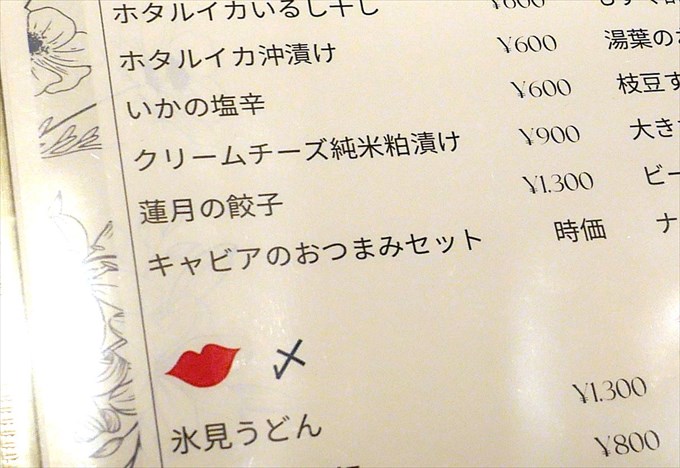 ホタルイカいるし干し ¥600
ホタルイカ沖漬け ¥600 湯葉の
いかの塩辛 ¥600 枝豆
クリームチーズ純米粕漬け ¥900 大き
蓮月の餃子 ¥1.300 ビー
キャビアのおつまみセット 時価 ナ
〆
氷見うどん ¥1.300
¥800